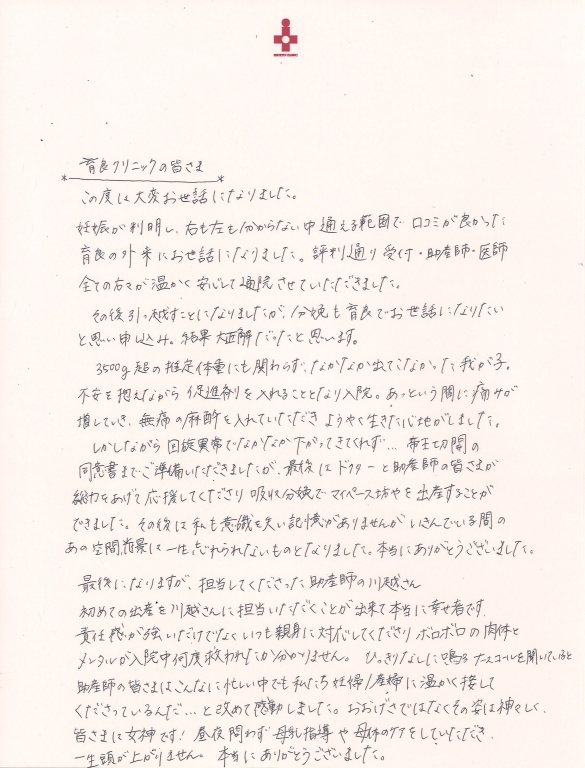 育良クリニックの皆さま
この度は大変お世話になりました。
妊娠が判明し、右も左も分からない中通える範囲で口コミが良かった
育良の外来にお世話になりました。評判通り受付・助産師・医師
全ての方々が温かく安心して通院させていただきました。
その後引っ越すことになりましたが、分娩も育良でお世話になりたい
と思い申し込み。結果大正解だったと思います。
3500g超の推定体重にも関わらず、なかなか出てこなかった我が子。
不安を抱えながら促進剤を入れることとなり入院。あっという間に痛みが
増していき、無痛の麻酔を入れていただきようやく生きた心地がしました。
しかしながら回旋異常でなかなか下がってきてくれず…帝王切開の
同意書までご準備いただきましたが、最後はドクターと助産師の皆さまが
総力をあげて応援してくださり吸収分娩でマイペース坊やを出産することが
できました。その後は私も意識を失い記憶がありませんがいきんでいる間の
あの空間、光景は一生忘れられないものとなりました。本当にありがとうございました。
最後になりますが、担当してくださった助産師の川越さん
初めての出産を川越さんに担当いただくことが出来て本当に幸せ者です。
責任感が強いだけでなくいつも親身に対応してくださりボロボロの肉体と
メンタルが入院中何度救われたか分かりません。ひっきりなしに鳴るナースコールを聞いていると
助産師の皆さまはこんなに忙しい中でも私たち妊婦/産婦に温かく接して
くださっているんだ…と改めて感動しました。おおげさではなくその姿は神々しく、
皆さまに女神です!昼夜問わず母乳指導や母体のケアをしていただき
一生頭が上がりません。本当にありがとうございました。